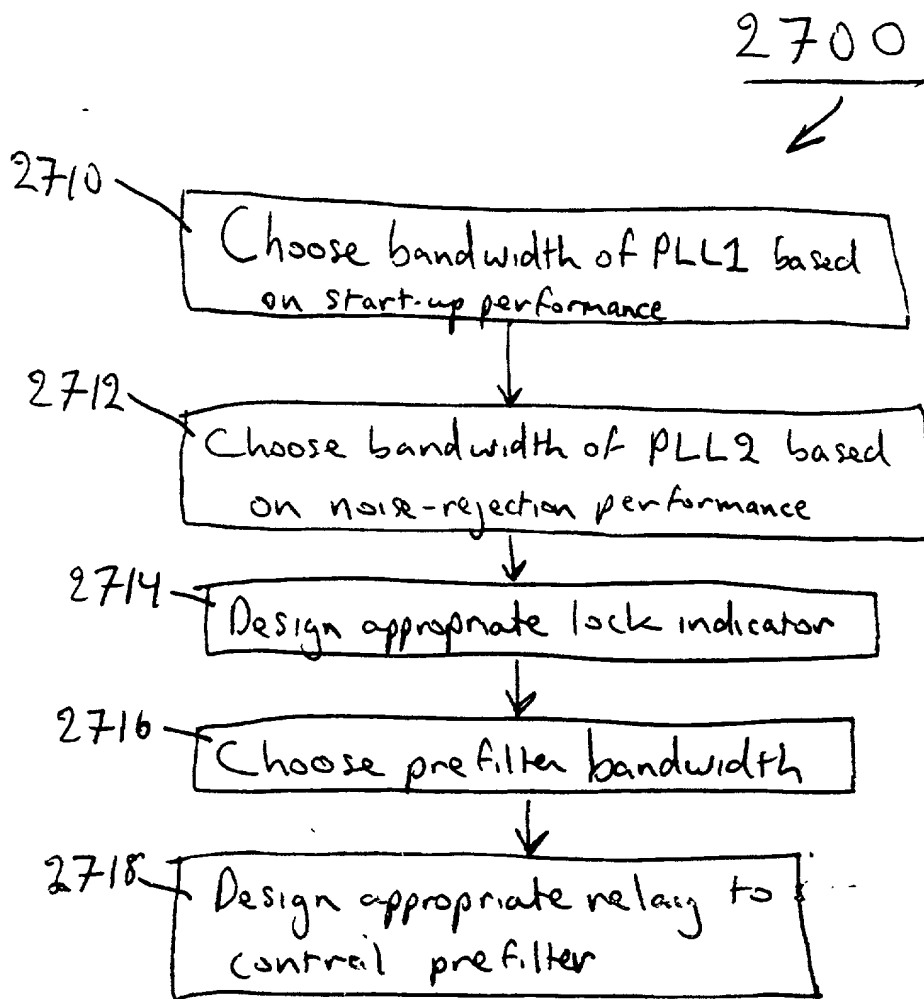 2700
2710
Choose bandwidth of PLL1 based
on start-up performance
2712
Choose bandwidth of PLL2 based
on noise-rejection performance
2714
Design appropriate lock indicator
2716
Choose prefilter bandwidth
2718
Design appropriate relay to
control prefilter